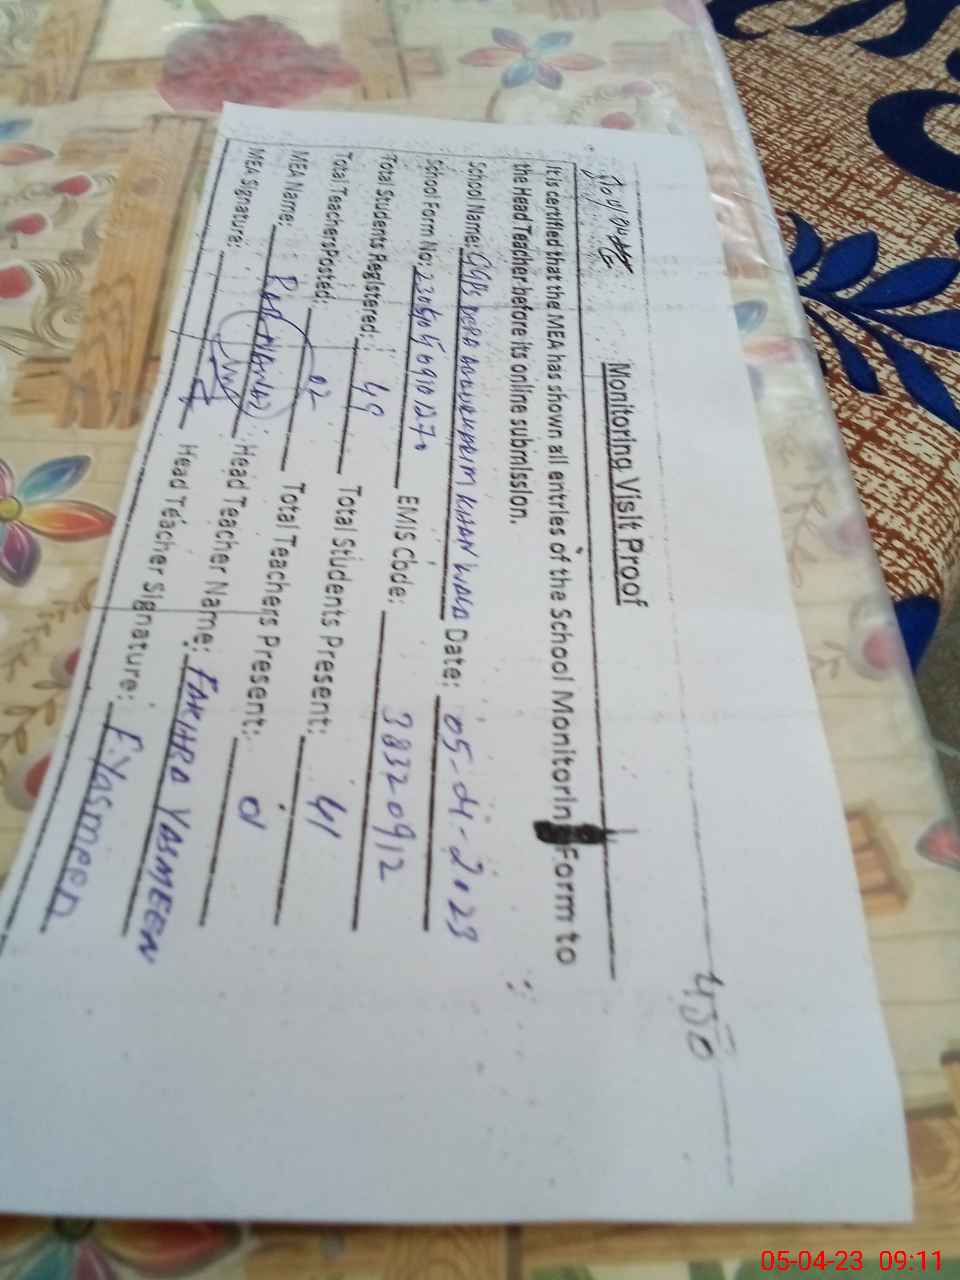 450
Monitoring Visit Proof
It is certified that the MEA has shown all entries of the School Monitorin Form to
the Head Teacher before its online submission.
School Name: GGPS DERA KHAN WALA Date: 05-04-2023
School Form No: EMIS Code: 38320912
Total Students Registered: 49 Total Students Present: 41
Total Teachers Posted: 02 Total Teachers Present: 01
MEA Name: Head Teacher Name: FAKHRA YASMEEN
MEA Signature: Head Teacher Signature: F.Yasmeen
05-04-23 09:11